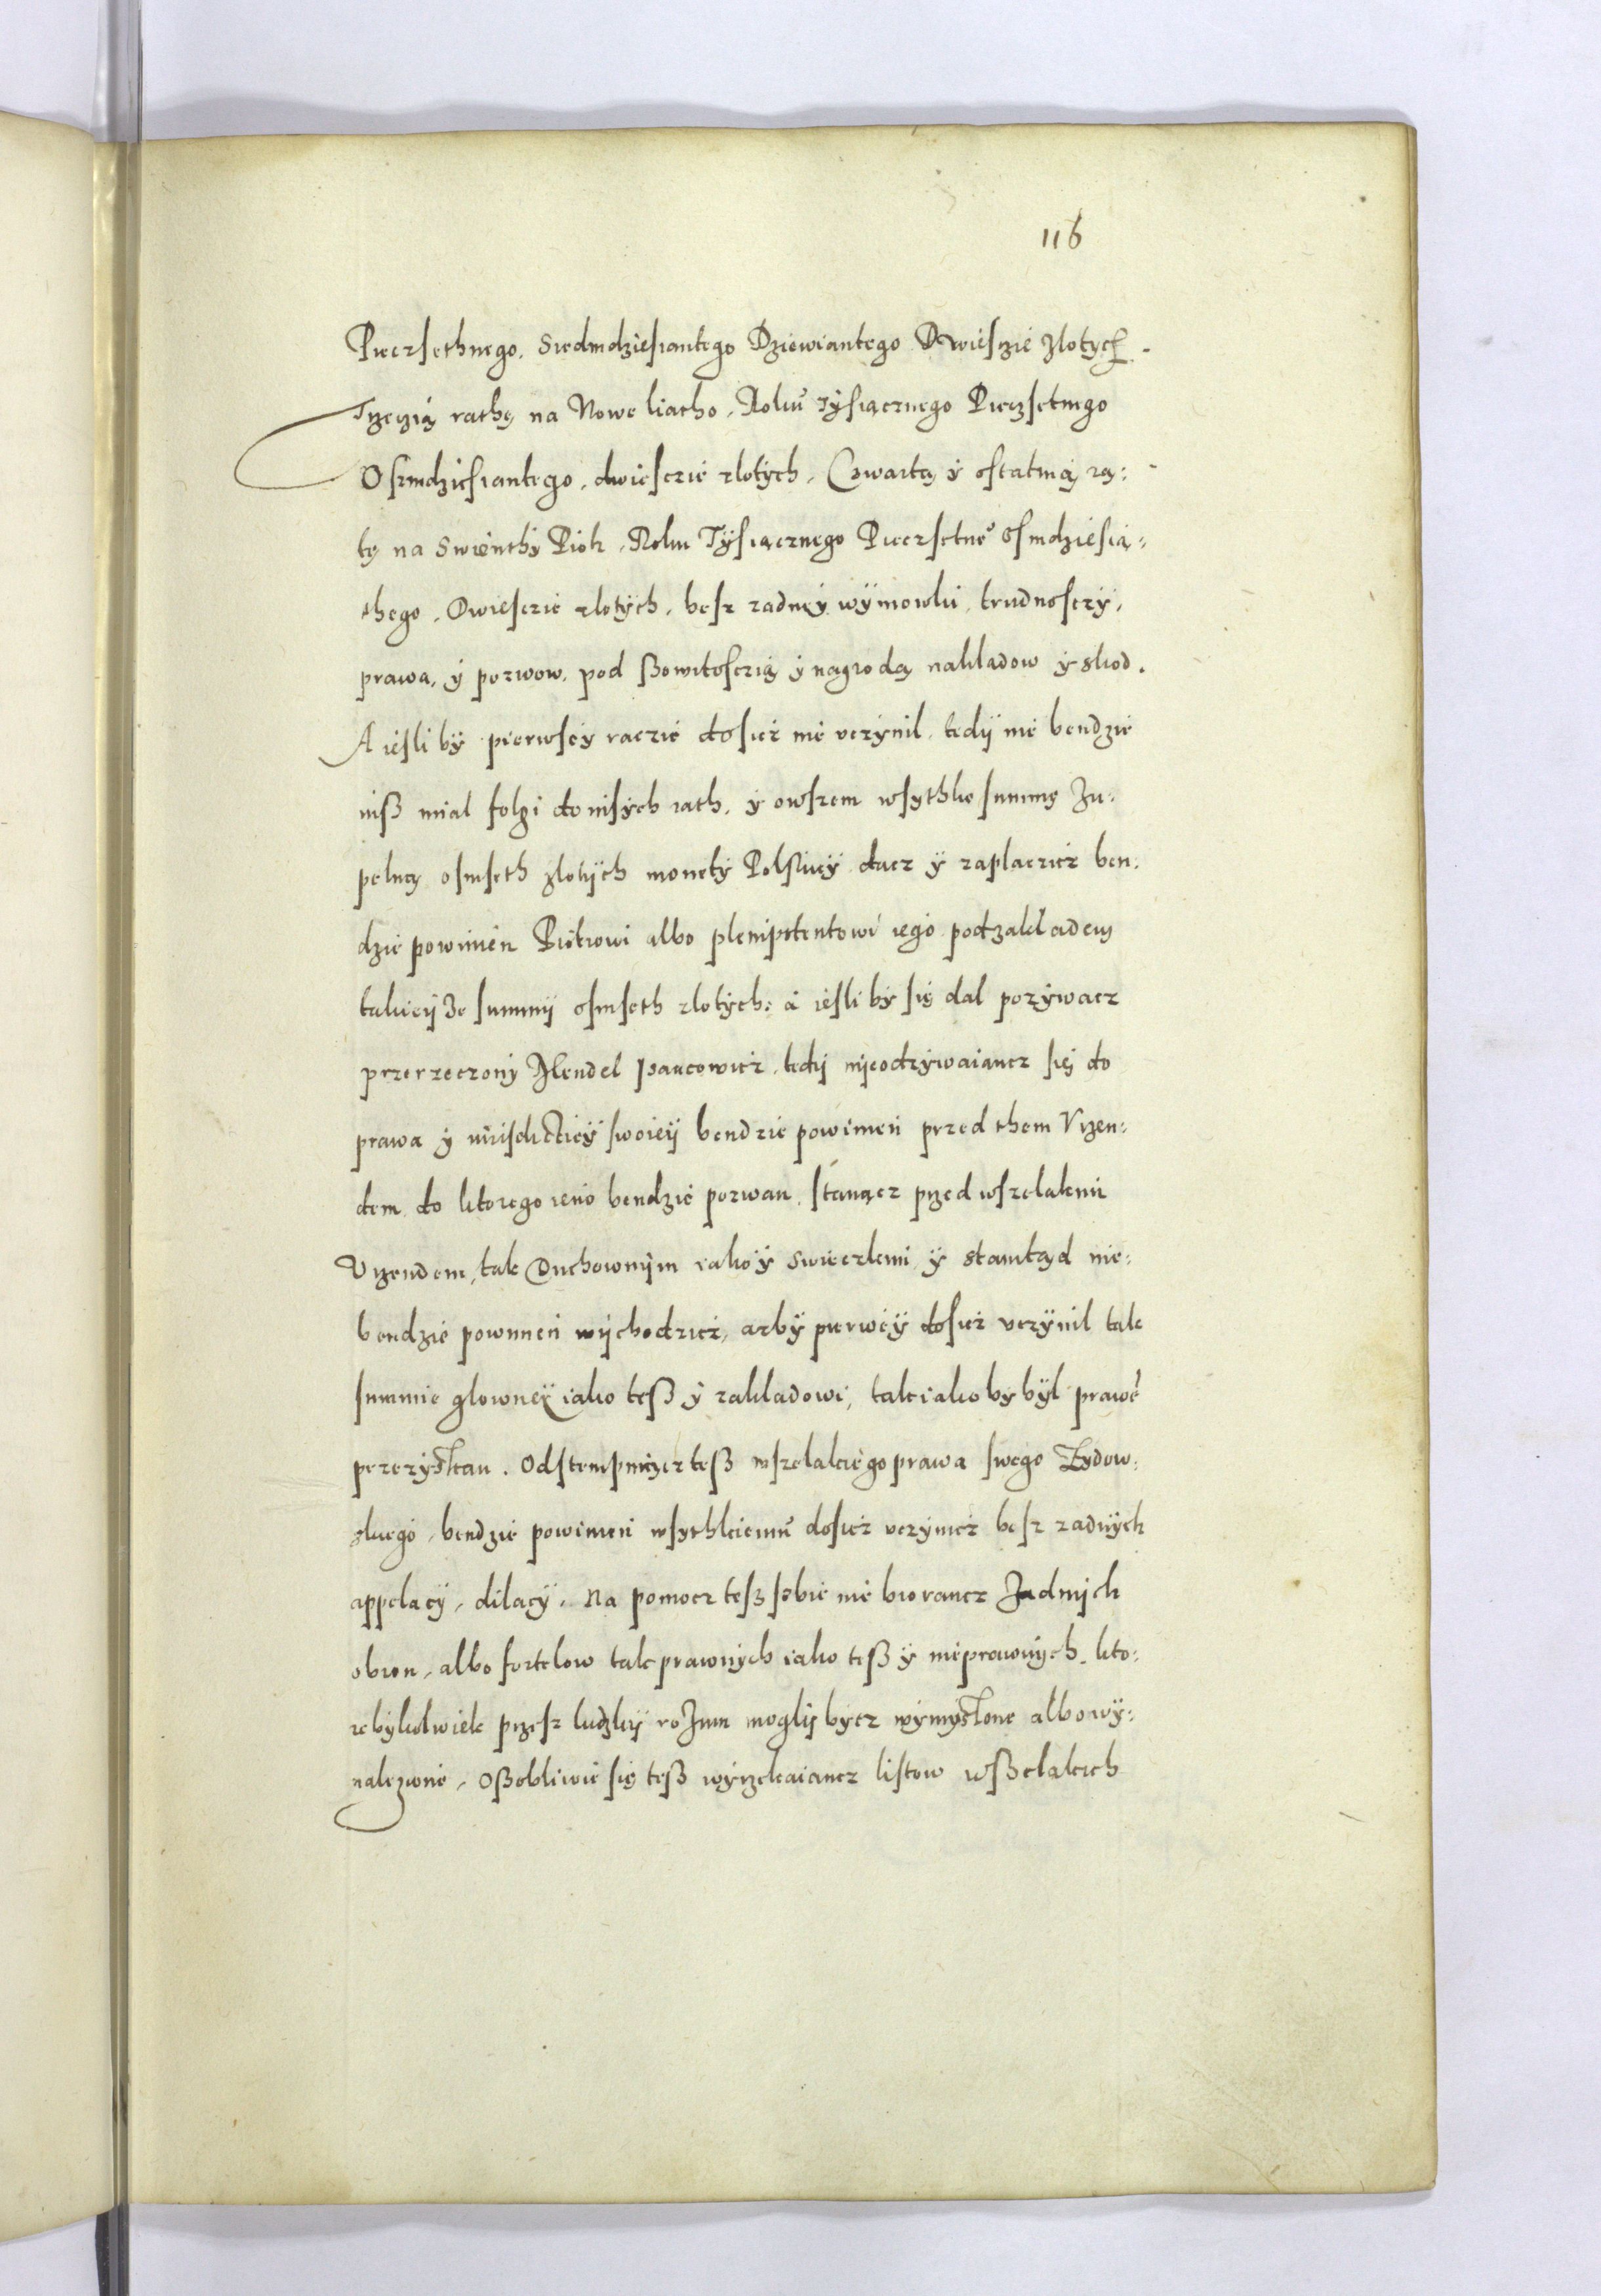 116
Piecrsethnego, Siedmdziesiantego Dziewiantego Dwieszie zlotych.
Trzeczią rathę na Nowe liatho, Roku Tysiącznego Pieczsetnego
Osmdziesiantego, dwiescie zlotych, Czwartą y ostatnią ra:
tę na Swienthy Piotr, Roku Tysiącznego Pieczsetne° Osmdziesią:
thego, Dwiescie zlotych, besz zadney wymowki, trudnosczy,
prawa, y pozwow, pod ßowitosczią y nagrodą nakladow y skod.
A iesli by pierwsey raczie dosicz nie uczynil, tedy nie bendzie
iuß mial folgi do inszych rath, y owszem wsythke summę zu:
pelną osmseth zlotych monety Polskiey dacz y zaplaczicz ben:
dzie powinien Piotrowi albo plenipotentowi iego pod zakladem
takieyze summy osmseth zlotych: a iesli by się dal pozywacz
przerzeczony Mendel Isaacowicz, tedy nieodzywaiancz się do
prawa y iurisdictiey swoiey bendzie powinien przed them Urzen:
dem, do ktorego ieno bendzie pozwan, stanącz przed wszelakim
Urzendem, tak Duchownym iako y Swieczkim, y stamtąd nie:
bendzie powinien wychodzicz, azby pierwey dosicz uczynil tak
summie glowney iako teß y zakladowi, tak iako by byl prawe
przezyskan. Odstempuiącz teß wszelakiego prawa swego Zydow:
skiego, bendzie powinien wsythkiemu dosicz uczynicz besz zadnych
appelacy, dilacy, Na pomocz teß sobie nie biorancz Zadnych
obron, albo fortelow tak prawnych iako teß y nieprawnych, kto:
rebykolwiek przesz ludzky rozum mogly bycz wymyslone albo wy:
nalezione, Oßobliwie się teß wyrzekaiancz listow wßelakich